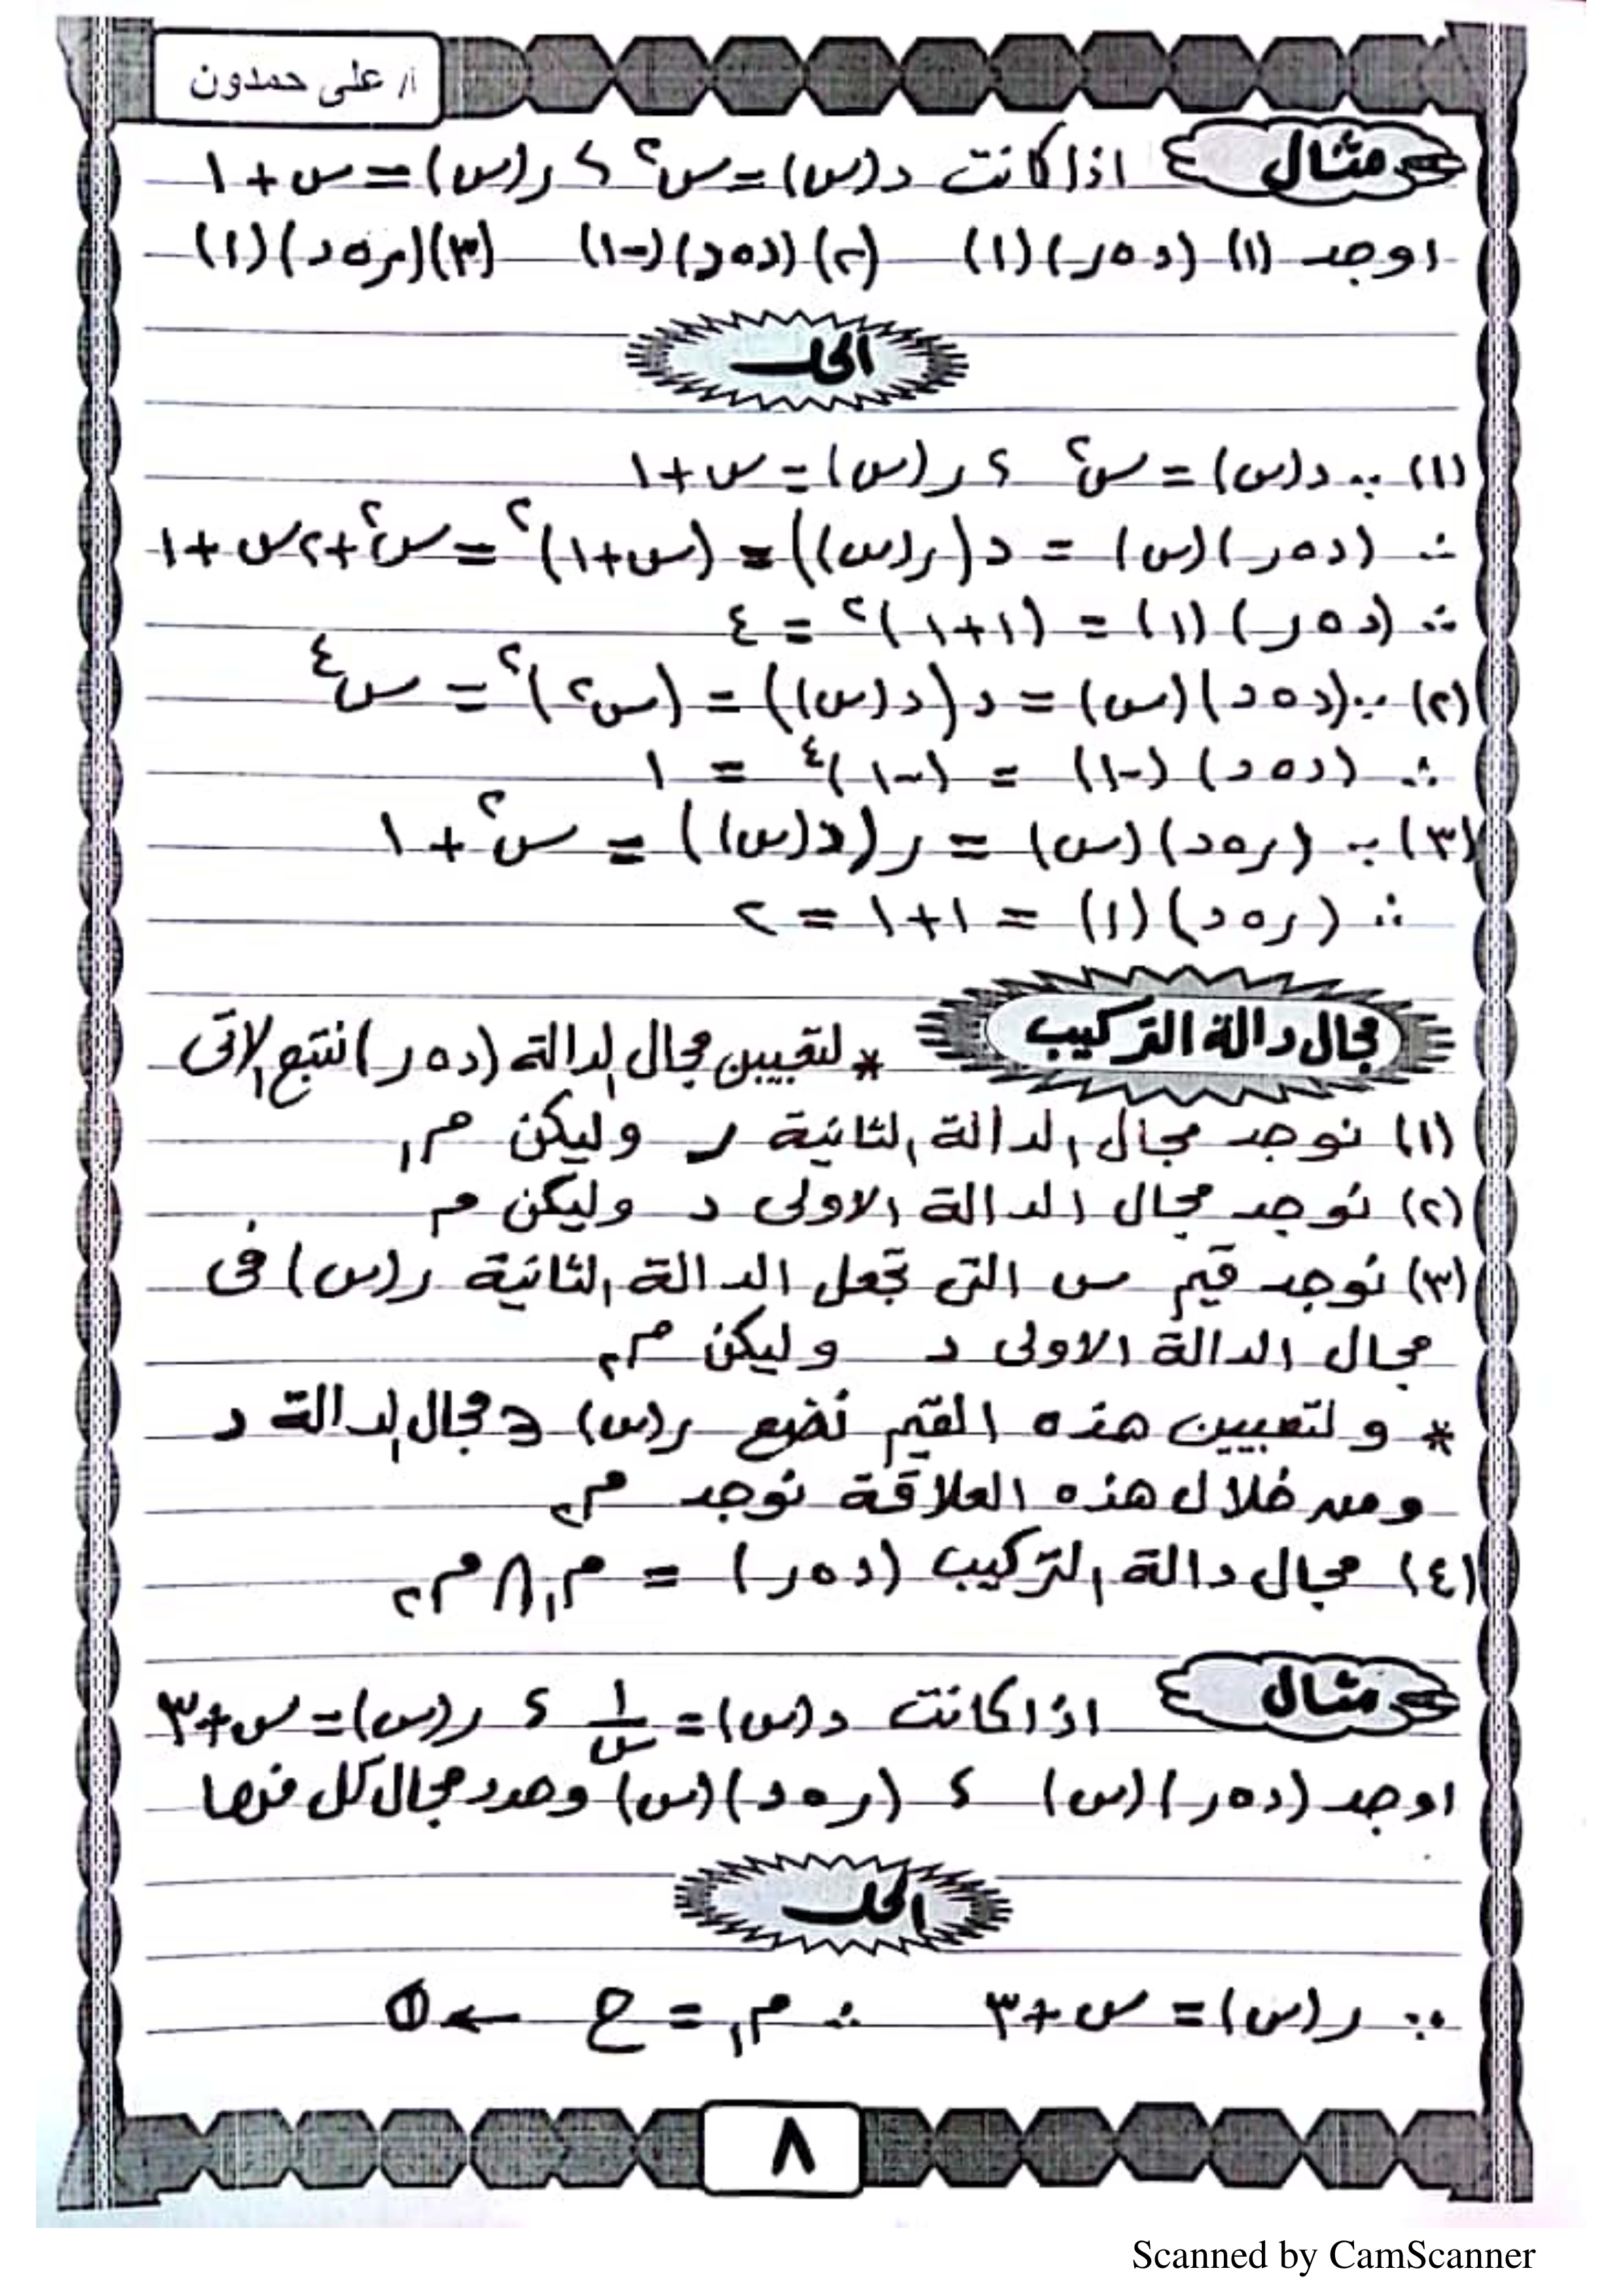 أ/ على حمدون
مثال اذا كانت د(س) = س² ؛ ر(س) = س + ١
اوجد (١) (د∘ر)(١) (٢) (د∘د)(-١) (٣) (ر∘د)(١)
الحل
(١) ∵ د(س) = س² ؛ ر(س) = س + ١
∴ (د∘ر)(س) = د(ر(س)) = (س+١)² = س² + ٢س + ١
∴ (د∘ر)(١) = (١+١)² = ٤
(٢) ∵ (د∘د)(س) = د(د(س)) = (س²)² = س⁴
∴ (د∘د)(-١) = (-١)⁴ = ١
(٣) ∵ (ر∘د)(س) = ر(د(س)) = س² + ١
∴ (ر∘د)(١) = ١+١ = ٢
مجال دالة التركيب * لتعيين مجال الدالة (د∘ر) نتبع الاتى
(١) نوجد مجال الدالة الثانية ر وليكن م₁
(٢) نوجد مجال الدالة الاولى د وليكن م
(٣) نوجد قيم س التى تجعل الدالة الثانية ر(س) فى
مجال الدالة الاولى د وليكن م₂
* ولتعيين هذه القيم نضع ر(س) ∈ مجال الدالة د
ومن خلال هذه العلاقة نوجد م₂
(٤) مجال دالة التركيب (د∘ر) = م₁ ∩ م₂
مثال اذا كانت د(س) = ١/س ؛ ر(س) = س+٣
اوجد (د∘ر)(س) ؛ (ر∘د)(س) وحدد مجال كل منها
الحل
∵ ر(س) = س+٣ ∴ م₁ = ح ← ①
٨
Scanned by CamScanner